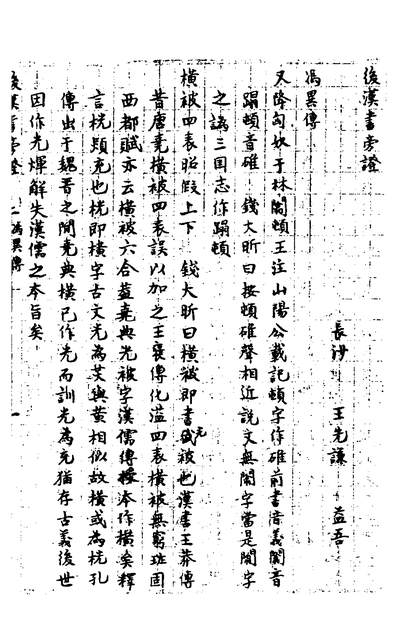 後漢書旁證
長沙 王先謙 益吾
馮異傳
又降匈奴于林闟頓王注山陽公載記頓字作碓前書音義闟音
蹋頓音碓 錢大昕曰按頓碓聲相近說文無闟字當是闒字
之譌三國志作蹋頓
橫被四表昭假上下 錢大昕曰橫被即書光被也漢書王莽傳
昔唐堯橫被四表誤以加之王襃傳化溢四表橫被無窮班固
西都賦亦云橫被六合葢堯典光被字漢儒傳授本作橫矣釋
言桄熲充也桄即橫字古文光為炗與黃相似故橫或為桄孔
傳出于魏晉之間堯典橫已作光而訓光為充猶存古義後世
因作光輝解失漢儒之本旨矣
後漢書旁證 馮異傳 一